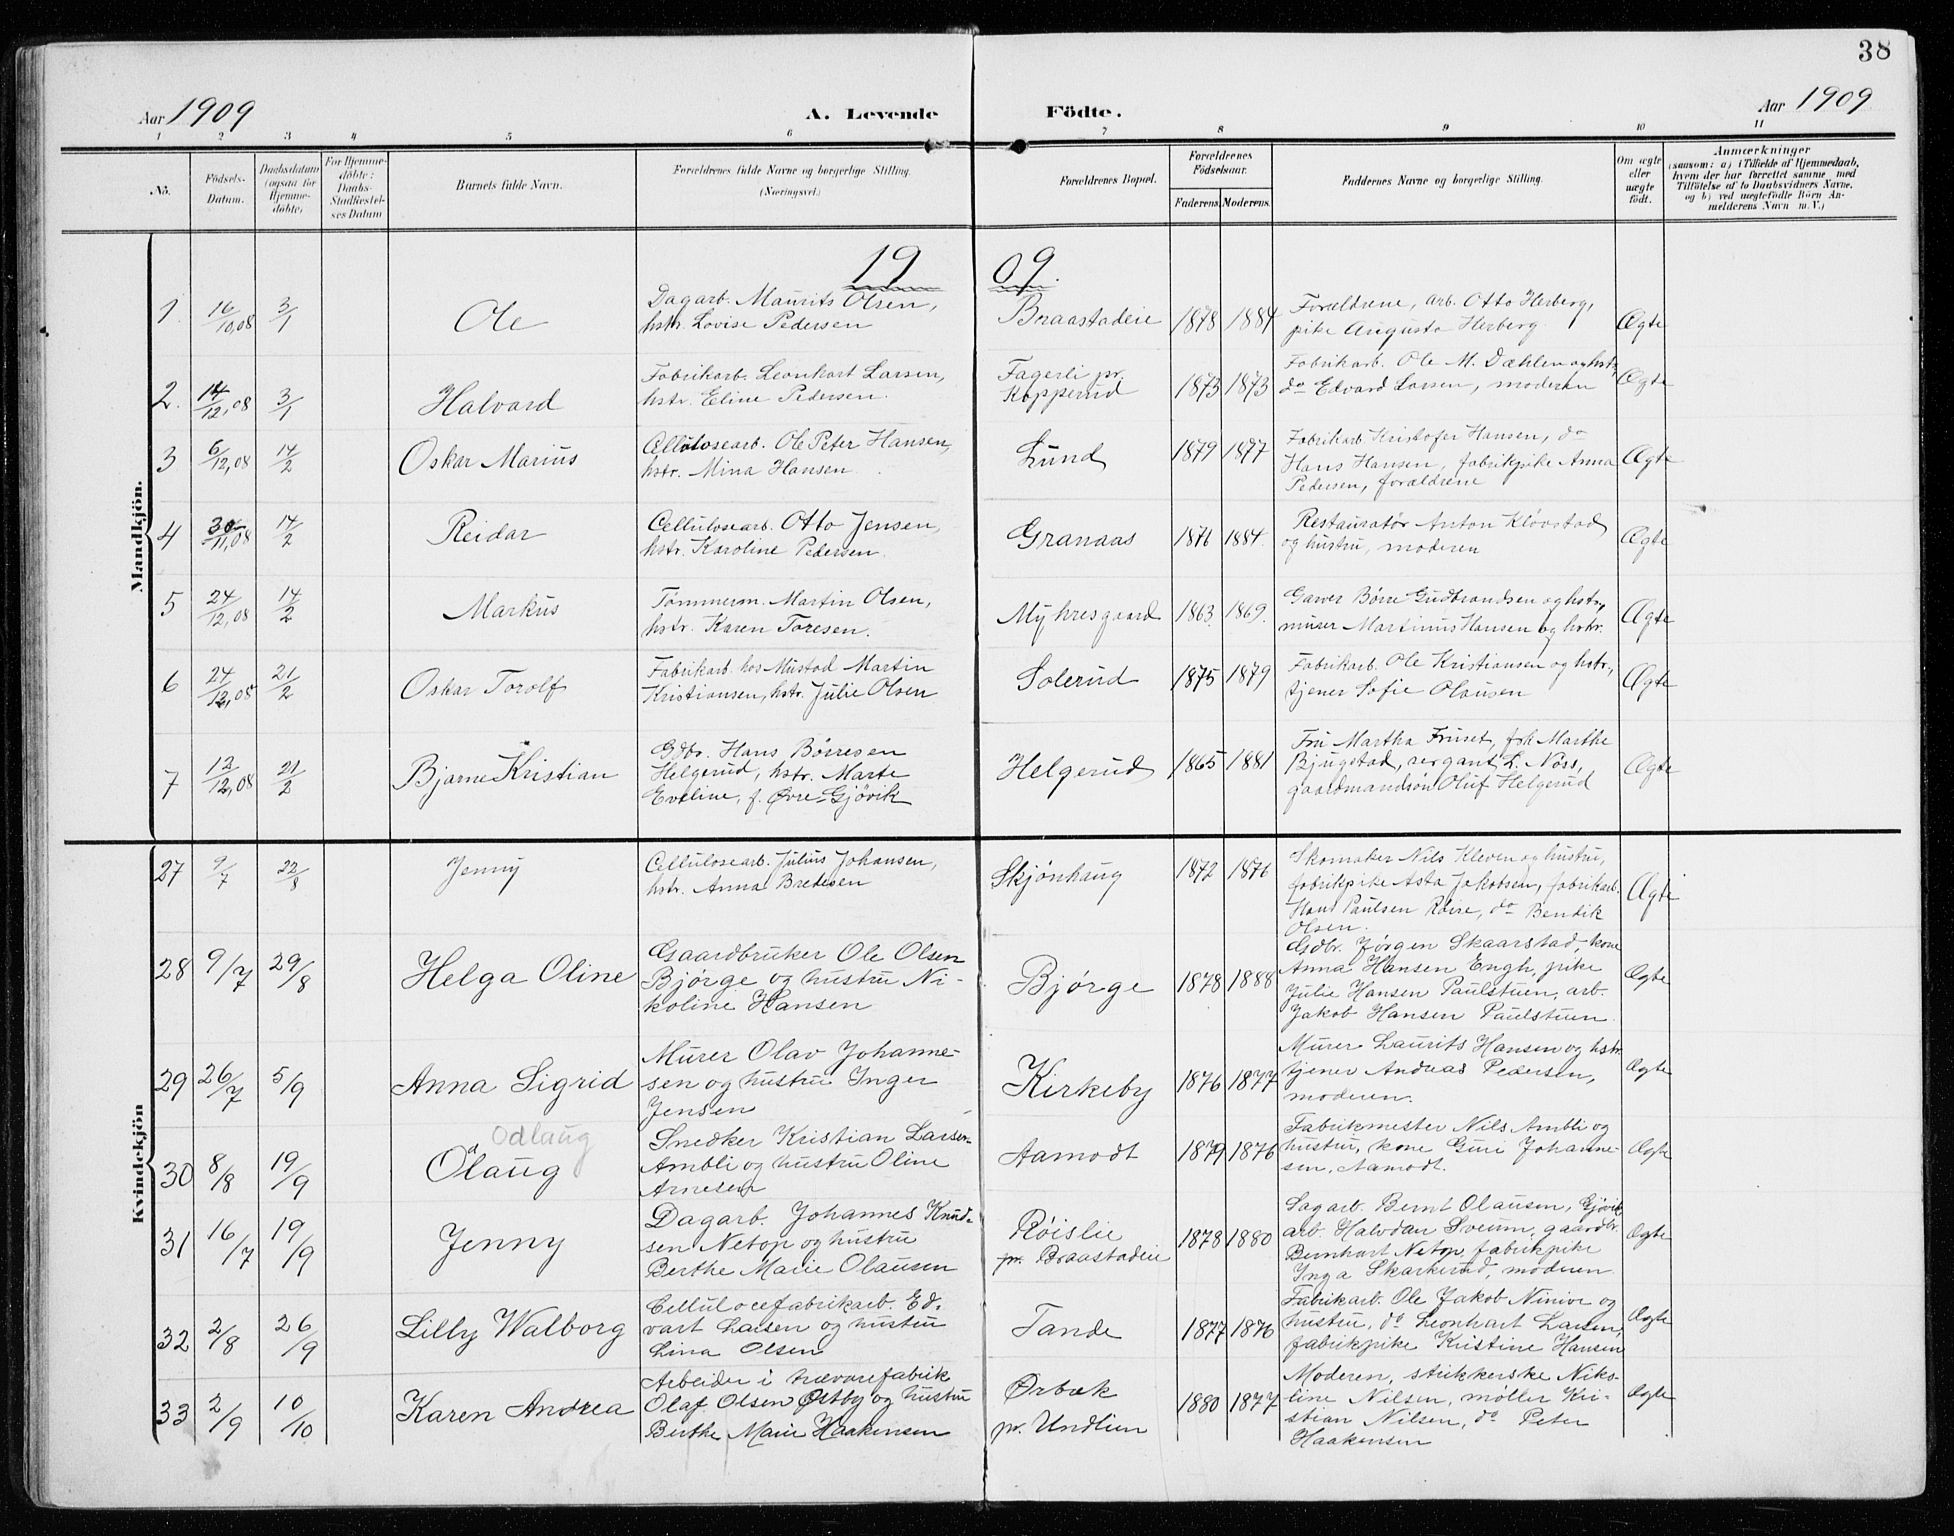 38
Aar 1909
A. Levende Födte.
Aar 1909
1 2 3 4 5 6 7 8 9 10 11
No.
Födsels-
Datum.
Daabsdatum
(ogsaa for
Hjemme-
döbte)
For Hjemme-
döbte:
Daabs-
Stadfæstel-
ses Datum
Barnets fulde Navn.
Forældrenes fulde Navne og borgerlige Stilling.
(Næringsvei.)
Forældrenes Bopæl.
Forældrenes
Födselsaar.
Faderens. Moderens.
Faddernes Navne og borgerlige Stilling.
Om ægte
eller
uægte
födt.
Anmærkninger
(saasom: a) i Tilfælde af Hjemmedaab,
hvem der har forrettet samme med
Tilföielse af to Daabsvidners Navne.
og b) ved uægtefödte Börn An-
melderens Navn m. V.)
Mandkjön.
1909.
1. 16/10,08 3/1 Ole
Dagarb. Maurits Olsen,
hstr. Lovise Pedersen
Braastadeie 1878 1884
Forældrene, arb. Otto Herberg,
pike Augusta Herberg.
Ægte
2. 14/12,08 3/1 Halvard
Fabrikarb. Leonhart Larsen,
hstr. Eline Pedersen.
Fagerli pr.
Kopperud
1873 1873
Fabrikarb. Ole M. Dæhlen og hstr.,
do Edvard Larsen, moderen
Ægte
3 6/12,08 14/2 Oskar Marius
Cellulosearb. Ole Peter Hansen,
hstr. Mina Hansen.
Lund 1879 1877
Fabrikarb. Kristofer Hansen, do
Hans Hansen, fabrikpike Anna
Pedersen, forældrene
Ægte
4 30/11,08 14/2 Reidar
Cellulosearb. Otto Jensen,
hstr. Karoline Pedersen.
Granaas 1876 1884.
Restauratør Anton Kløvstad
og hustru, moderen
Ægte
5 24/12,08 14/2 Markus
Tømmerm. Martin Olsen,
hstr. Karen Toresen.
Myhresgaard 1863. 1869.
Garver Børre Gudbrandsen og hstr.,
murer Martinus Hansen og hstr.
Ægte
6 24/12,08 21/2 Oskar Torolf
Fabrikarb. hos Mustad Martin
Kristiansen, hstr. Julie Olsen
Solerud 1875 1879
Fabrikarb. Ole Kristiansen og hstr.,
tjener Sofie Olausen
Ægte
7 12/12,08 21/2 Bjarne Kristian
Gdbr. Hans Børresen
Helgerud, hstr. Marte
Eveline, f. Øvre-Gjøvik
Helgerud 1865 1881
Fru Martha Fruset, frk Marthe
Bjugstad, sergant L. Nøss,
gaardmandsøn Oluf Helgerud
Ægte
Kvindekjön
27 9/7 22/8 Jenny
Cellulosearb. Julius Johansen,
hstr. Anna Bredesen
Skjönhaug 1872 1876
Skomaker Nils Kleven og hustru,
fabrikpike Asta Jakobsen, fabrikarb.
Hans Paulsen Røise, do Bendik
Olsen.
Ægte
28 9/7 29/8 Helga Oline
Gaardbruker Ole Olsen
Bjørge og hustru Ni-
koline Hansen
Bjørge 1878 1888
Gdbr. Jørgen Skaarstad, kone
Anna Hansen Engh, pike
Julie Hansen Paulstuen, arb.
Jakob Hansen Paulstuen.
Ægte
29 26/7 5/9 Anna Sigrid
Murer Olav Johanne-
sen og hustru Inger
Jensen
Kirkeby 1876 1877
Murer Laurits Hansen og hstr.
tjener Andreas Pedersen,
moderen.
Ægte
Odlaug
30 8/8 19/9 Odlaug
Snedker Kristian Larsen
Ambli og hustru Oline
Arnesen
Aamodt 1879 1876
Fabrikmester Nils Ambli og
hustru, kone Guri Johanne-
sen, Aamodt.
Ægte
31 16/7 19/9 Jenny
Dagarb. Johannes Knud-
sen Netop og hustru
Berthe Marie Olausen
Røislie
pr. Braastadeie
1878 1880
Sagarb. Bernt Olausen, Gjøvik
arb. Halvdan Sveum, gaardbr.
Bernhart Netop, fabrikpike
Inga Skarkerud, moderen
Ægte
32 2/8 26/9 Lilly Walborg
Cellulocefabrikarb. Ed-
vart Larsen og hustru
Lina Olsen
Tande 1877 1876
Fabrikarb. Ole Jakob Ninive og
hustru, do Leonhart Larsen,
fabrikpike Kristine Hansen
Ægte
33 2/9 10/10 Karen Andrea
Arbeider i trævarefabrik
Olaf Olsen Østby og hustru
Berthe Marie Haakensen
Ørbæk
pr. Undlien
1880 1877
Moderen, strikkerske Nik-
line Nilsen, møller Kri-
stian Nilsen, do Peter
Haakensen
Ægte